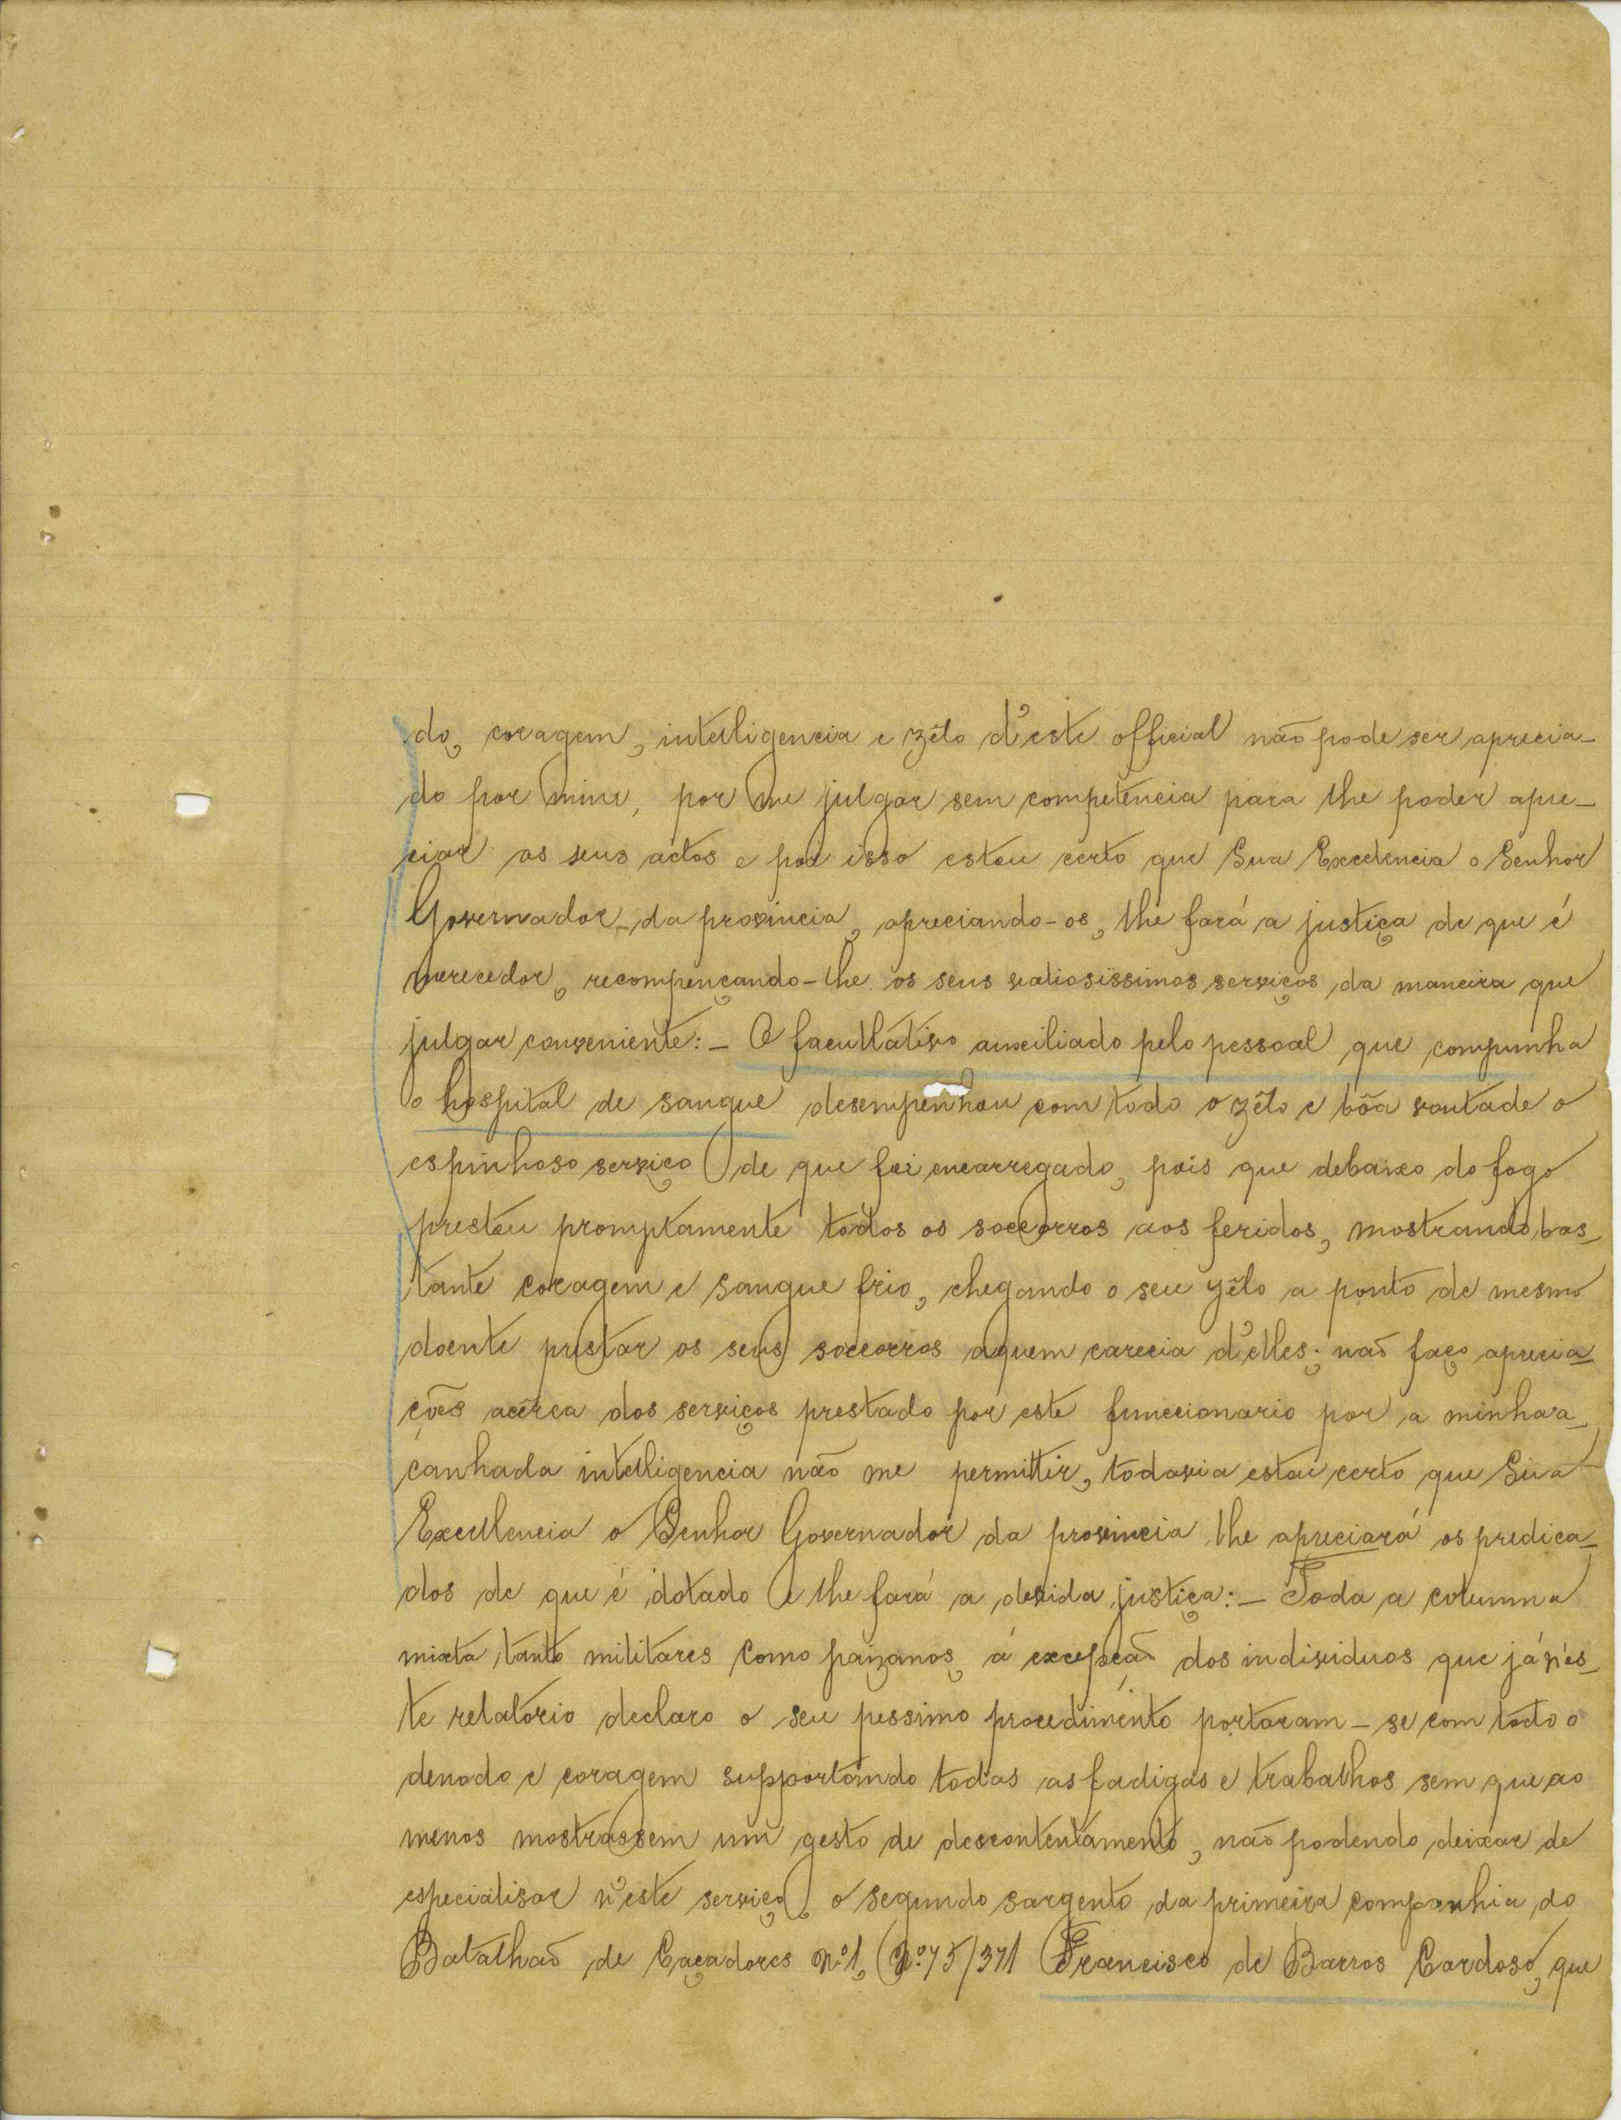 do, coragem, intelligencia e zêlo d'este official não pode ser aprecia-
do por mim, por me julgar sem competencia para lhe poder apre-
ciar os seus actos e por isso estou certo que Sua Excelencia o Senhor
Governador da provincia, apreciando-os, lhe fará a justiça de que é
merecedor, recompençando-lhe os seus valiosissimos serviços da maneira que
julgar conveniente:- O facultativo auxiliado pelo pessoal que compunha
o hospital de sangue desempenhou com todo o zêlo e bôa vontade o
espinhoso serviço de que foi encarregado, pois que debaixo do fogo
prestou promptamente todos os soccorros aos feridos, mostrando bas-
tante coragem e sangue frio, chegando o seu zêlo a ponto de mesmo
doente prestar os seus soccorros aquem carecia d'elles; não faço aprecia-
ções acêrca dos serviços prestado por este funccionario por a minha a-
canhada intelligencia não me permittir, todavia estou certo que Sua
Excellencia o Senhor Governador da provincia lhe apreciará os predica-
dos de que é dotado e lhe fará a devida justiça:- Toda a columna
mixta tanto militares como paizanos, á excepção dos individuos que já n'es-
te relatorio declaro o seu pessimo procedimento portaram-se com todo o
denodo e coragem supportando todas as fadigas e trabalhos sem que ao
menos mostrassem um gesto de descontentamento, não podendo deixar de
especialisar n'este serviço, o segundo sargento da primeira companhia do
Batalhão de Caçadores nº1, nº75/371 Francisco de Barros Cardoso, que